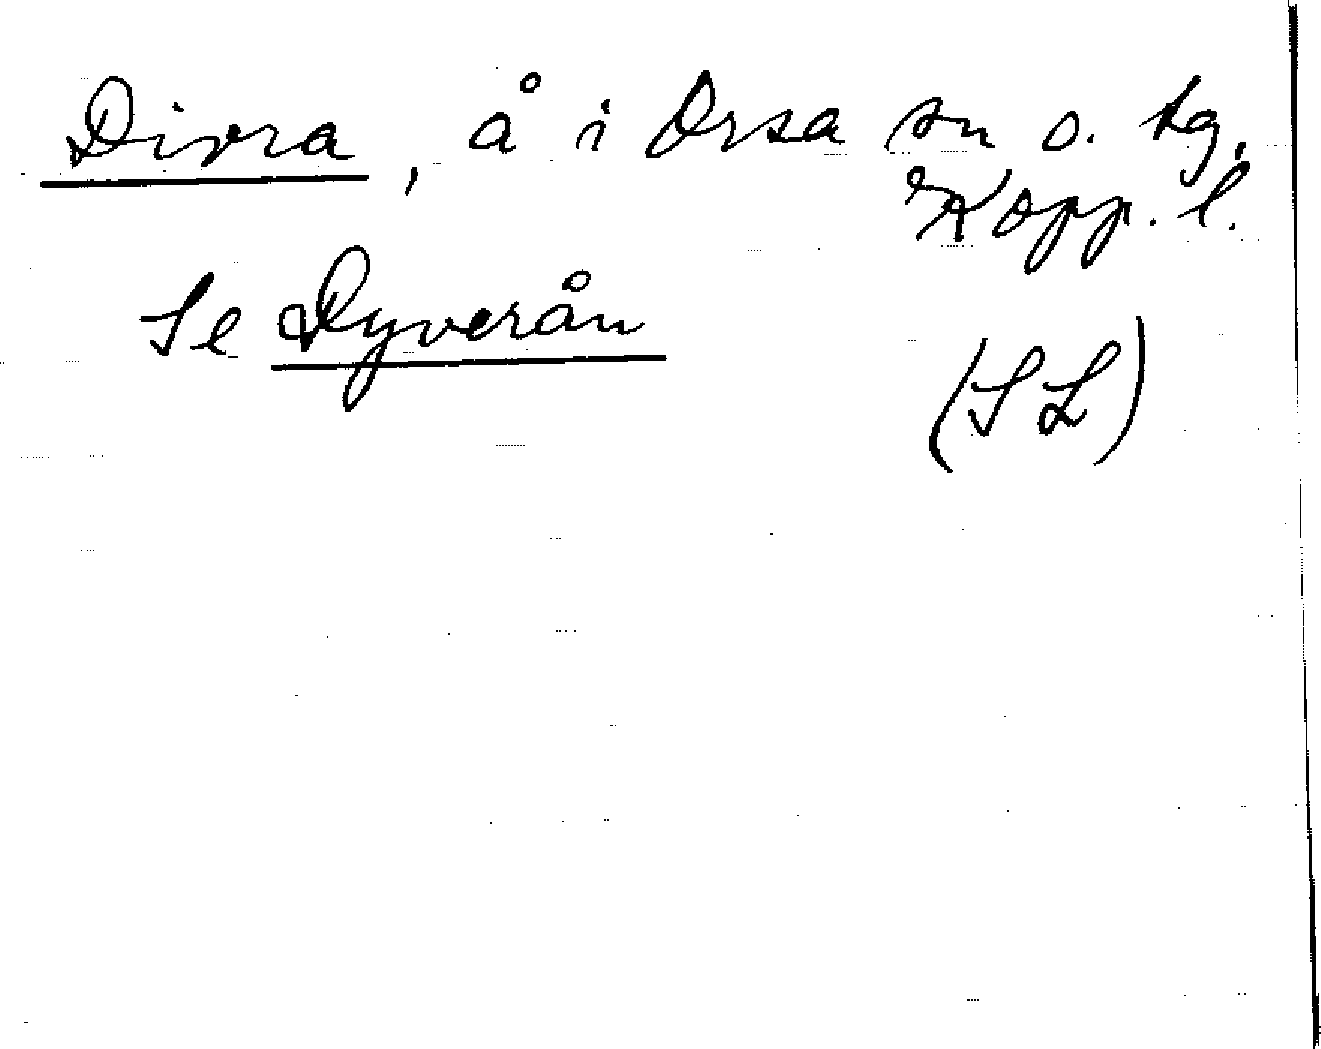 Divra, å i Orsa sn o. tg,
Kopp. l.
Se Dyverån
(SL)